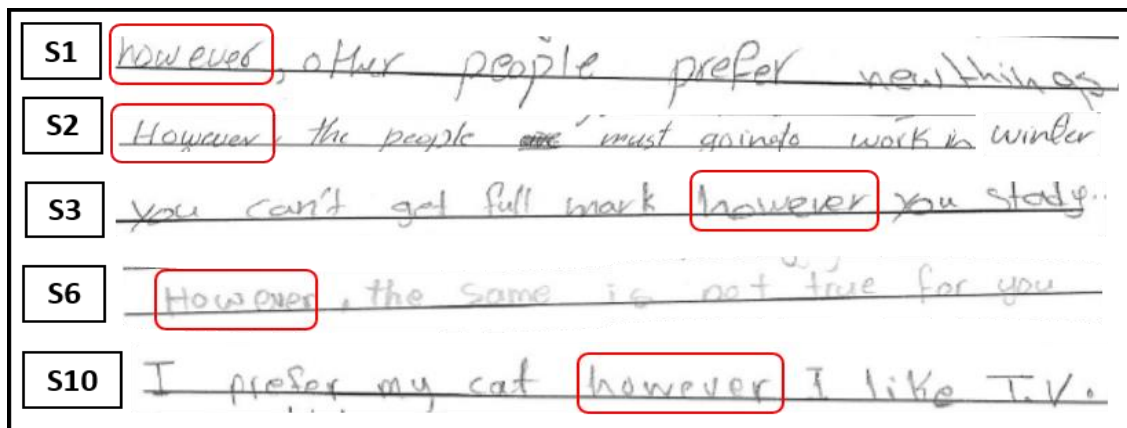 S1 however, other people prefer new things
S2 However, the people must goindo work in winter
S3 you can't get full mark however you stady..
S6 However, the same is not true for you
S10 I prefer my cat however I like T.V.